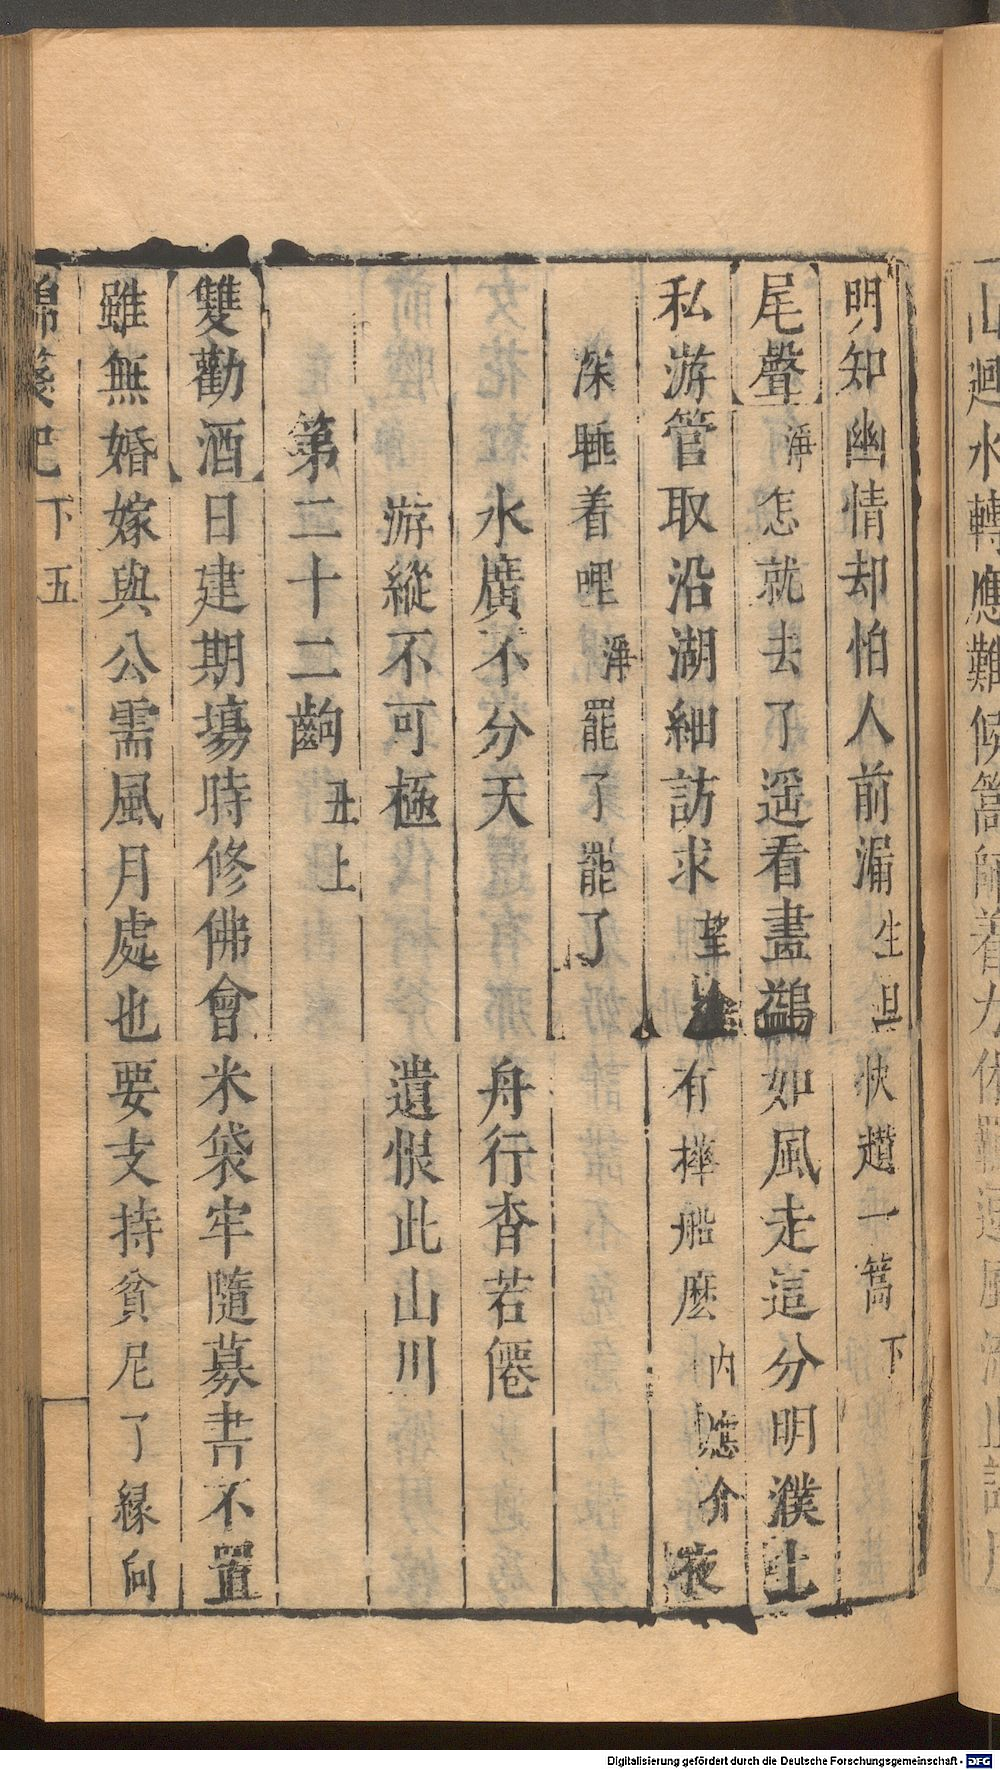 明知幽情却怕人前漏生旦快趲一篙下
尾聲淨怎就去了遥看畫鷁如風走這分明濮上
私游管取沿湖細訪求望有樺船麽内應介夜
深睡着哩淨罷了罷了
水廣不分天 舟行杳若僊
游縱不可極 遺恨此山川
第二十二齣丑上
雙勸酒日建期塲時修佛會米袋牢隨募書不置
雖無婚嫁與公需風月處也要支持貧尼了縁向
錦箋記 下 五
水轉應難候篙師着力
Digitalisierung gefördert durch die Deutsche Forschungsgemeinschaft - DFG